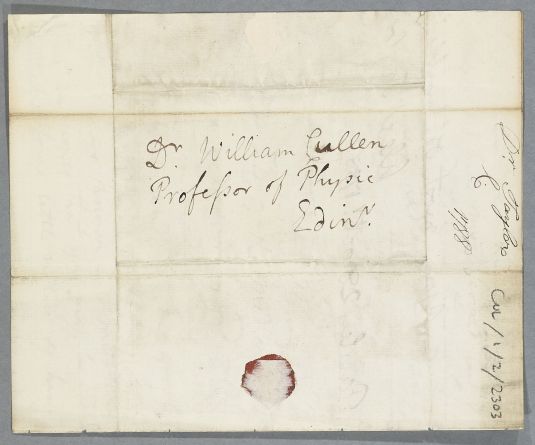 Dr. William Cullen
Professor of Physic
Edinr.
Dr. Taylor
C.
1788
CUL/1/2/2303